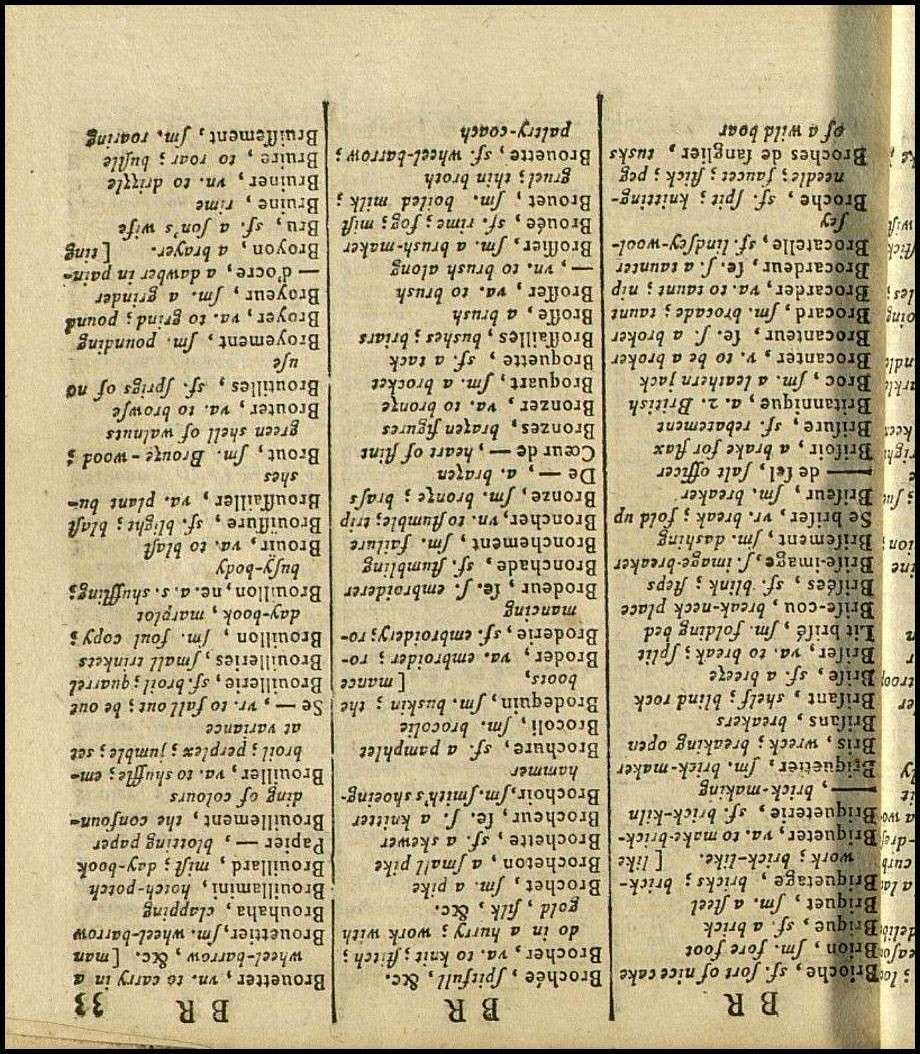 B R
B R
B R 33
Brioche, sf. ſort of nice cake
Brion, ſm. fore foot
Brique, sf. a brick
Briquet, ſm. a ſteel
Briquetage, bricks; brick-
work; brick-like. [ like
Briqueter, va. to make brick-
Briqueterie, sf. brick-kiln
—, brick-making
Briquetier, ſm. brick-maker
Bris, wreck; breaking open
Briſans, breakers
Briſant, ſhelf; blind rock
Briſe, sf. a breeze
Briſer, va. to break; ſplit
Lit briſé, ſm. folding bed
Briſe-cou, break-neck place
Briſées, sf. blink; ſteps
Briſe-image, ſ. image-breaker
Briſement, ſm. daſhing
Se briſer, vr. break; fold up
Briſeur, ſm. breaker
— de ſel, ſalt officer
Briſoir, a brake for flax
Briſure, sf. rebatement
Britannique, a. 2. Britiſh
Broc, ſm. a leathern jack
Brocanter, v. to be a broker
Brocanteur, ſe. ſ. a broker
Brocard, ſm. brocade; taunt
Brocarder, va. to taunt; nip
Brocardeur, ſe. ſ. a taunter
Brocatelle, sf. lindſey-wool-
ſey
Broche, sf. ſpit; knitting-
needle; faucet; ſtick; peg
Broches de ſanglier, tusks
of a wild boar
Brochée, ſpitfull, &c.
Brocher, va. to knit; ſtitch;
do in a hurry; work with
gold, ſilk, &c.
Brochet, ſm. a pike
Brocheton, a ſmall pike
Brochette, sf. a skewer
Brocheur, ſe. ſ. a knitter
Brochoir, ſm. ſmith's shoeing-
hammer
Brochure, sf. a pamphlet
Brocoli, ſm. brocolie
Brodequin, ſm. buskin; the
boots, [ mance
Broder, va. embroider; ro-
Broderie, sf. embroidery; ro-
mancing
Brodeur ſe. ſ. embroiderer
Bronchade, sf. ſtumbling
Bronchement, ſm. failure
Broncher, vn. to ſtumble; trip
Bronze, ſm. bronze; braſs
De —, a. brazen
Cœur de —, heart of flint
Bronzes, brazen figures
Bronzer, va. to bronze
Broquart, ſm. a brocket
Broquette, sf. a tack
Broſſailles, buſhes; briars
Broſſe, a bruſh
Broſſer, va. to bruſh
—, vn. to bruſh along
Broſſier, ſm. a bruſh-maker
Brouée, sf. rime; fog; miſt
Brouet, ſm. boiled milk;
gruel; thin broth
Brouette, sf. wheel-barrow;
paltry-coach
Brouetter, vn. to carry in a
wheel-barrow, &c. [ man
Brouettier, ſm. wheel-barrow
Brouhaha, clapping
Brouillamini, hotch-potch
Brouillard, miſt; day-book
Papier —, blotting paper
Brouillement, the confoun-
ding of colours
Brouiller, va. to ſhuffle; em-
broil; perplex; jumble; set
at variance
Se —, vr. to fall out; be out
Brouillerie, sf. broil; quarrel
Brouilleries, ſmall trinkets
Brouillon, ſm. foul copy;
day-book, marplot
Brouillon, ne. a. s. ſhuffling;
buſy-body
Brouir, va. to blaſt
Brouiſſure, sf. blight; blaſt
Brouſſailler, va. plant bu-
shes
Brout, ſm. Bronze-wood;
green ſhell of walnuts
Brouter, va. to browſe
Broutilles, sf. ſprigs of no
uſe
Broyement, ſm. pounding
Broyer, va. to grind; pound
Broyeur, ſm. a grinder
— d'ocre, a dawber in pain-
Broyon, a brayer. [ ting
Bru, sf. a ſon's wife
Bruine, rime
Bruiner, vn. to drizzle
Bruire, to roar; buſtle
Bruiſſement, ſm. roaring